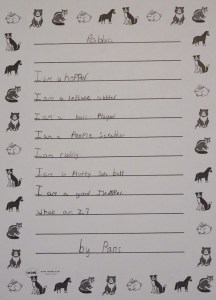 Rabbit
I am a hopper
I am a lettuce eater
I am a ball Player
I am a People Scratcher
I am cuddly
I am a fluffy ball
I am a good Jumper
What am I?
by